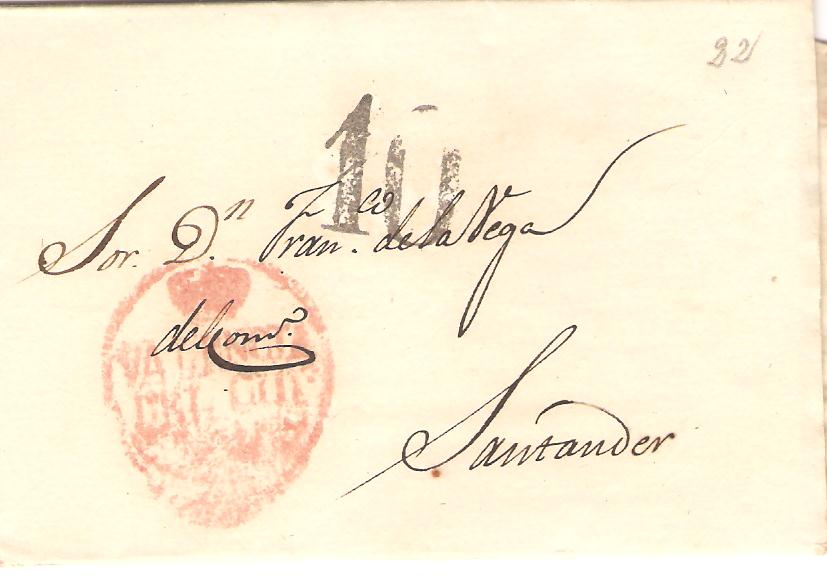 22
10
Sor. Dn. Franco. de la Vega
del Comº.
Santander